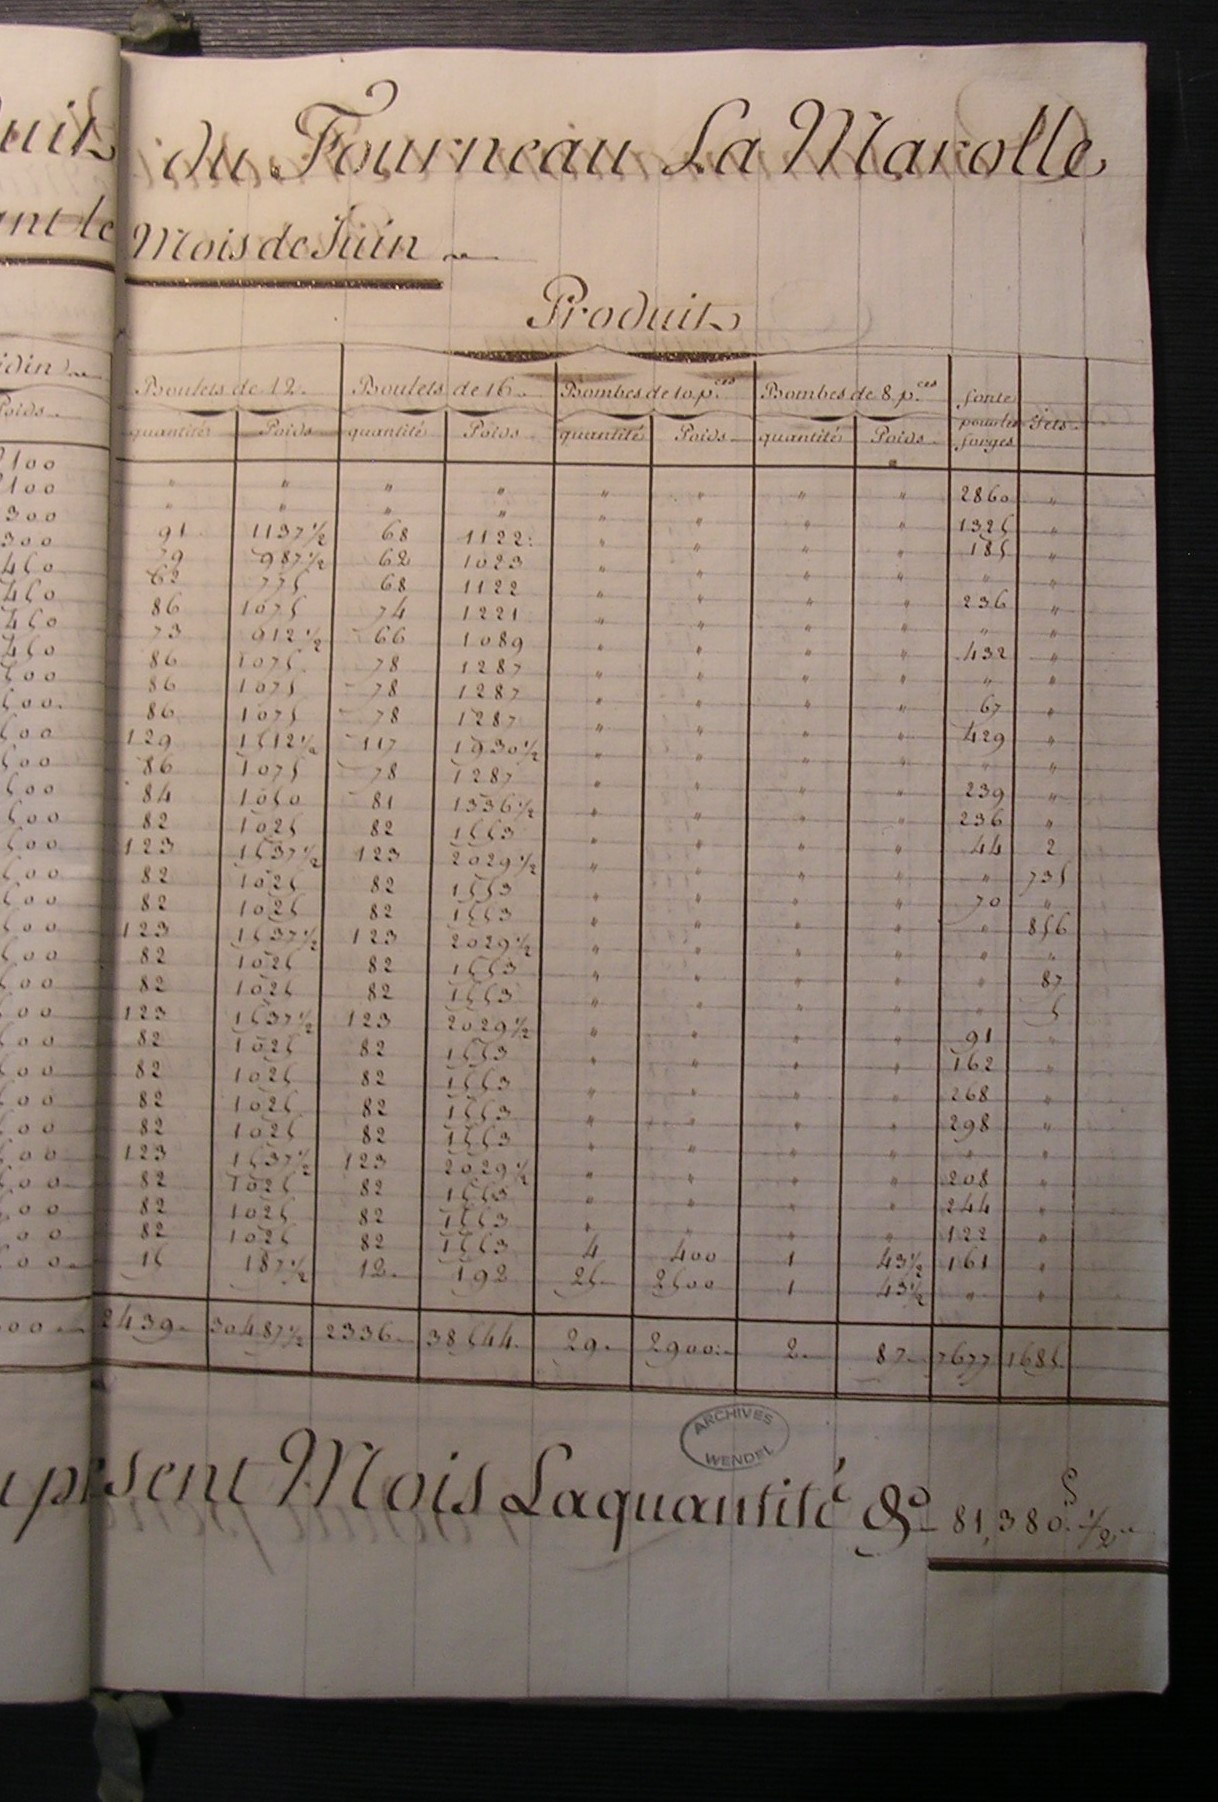 du Fourneau La Marolle
ant le Mois de Juin
Produits
Boulets de 12. Boulets de 16. Bombes de 10 p.ces Bombes de 8 p.ces fonte pour les forges Jets.
Poids quantité Poids quantité Poids quantité Poids quantité Poids
100 " " " " " " " " 2860 "
100 " " " " " " " " 1325 "
300 91 1137 1/2 68 1122 " " " " 185 "
300 79 987 1/2 62 1023 " " " " " "
450 62 775 68 1122 " " " " 236 "
450 86 1075 74 1221 " " " " " "
450 73 912 1/2 66 1089 " " " " 432 "
450 86 1075 78 1287 " " " " " "
500 86 1075 78 1287 " " " " 67 "
500 86 1075 78 1287 " " " " 429 "
500 129 1512 1/2 117 1930 1/2 " " " " " "
500 86 1075 78 1287 " " " " 239 "
500 84 1050 81 1336 1/2 " " " " 236 "
500 82 1025 82 1553 " " " " 44 2
500 123 1537 1/2 123 2029 1/2 " " " " " 735
500 82 1025 82 1553 " " " " 70 "
500 82 1025 82 1553 " " " " " 856
500 123 1537 1/2 123 2029 1/2 " " " " " "
500 82 1025 82 1553 " " " " " 87
500 82 1025 82 1553 " " " " " 5
500 123 1537 1/2 123 2029 1/2 " " " " 91 "
500 82 1025 82 1553 " " " " 162 "
500 82 1025 82 1553 " " " " 268 "
500 82 1025 82 1553 " " " " 298 "
500 82 1025 82 1553 " " " " " "
500 123 1537 1/2 123 2029 1/2 " " " " 208 "
500 82 1025 82 1553 " " " " 244 "
500 82 1025 82 1553 " " " " 122 "
500 82 1025 82 1553 4 400 1 43 1/2 161 "
500 15 187 1/2 12 192 25 2500 1 43 1/2 " "
2439 30487 1/2 2336 38544 29 2900 2 87 7677 1685
ARCHIVES
WENDEL
present Mois La quantité &c 81,380 1/2